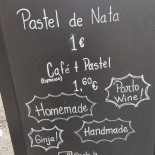 Pastel de Nata
1€
Café + Pastel
1,60€
Porto
Wine!
Homemade
Ginja!
Handmade